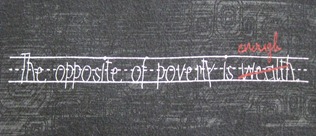 enough
The opposite of poverty is wealth